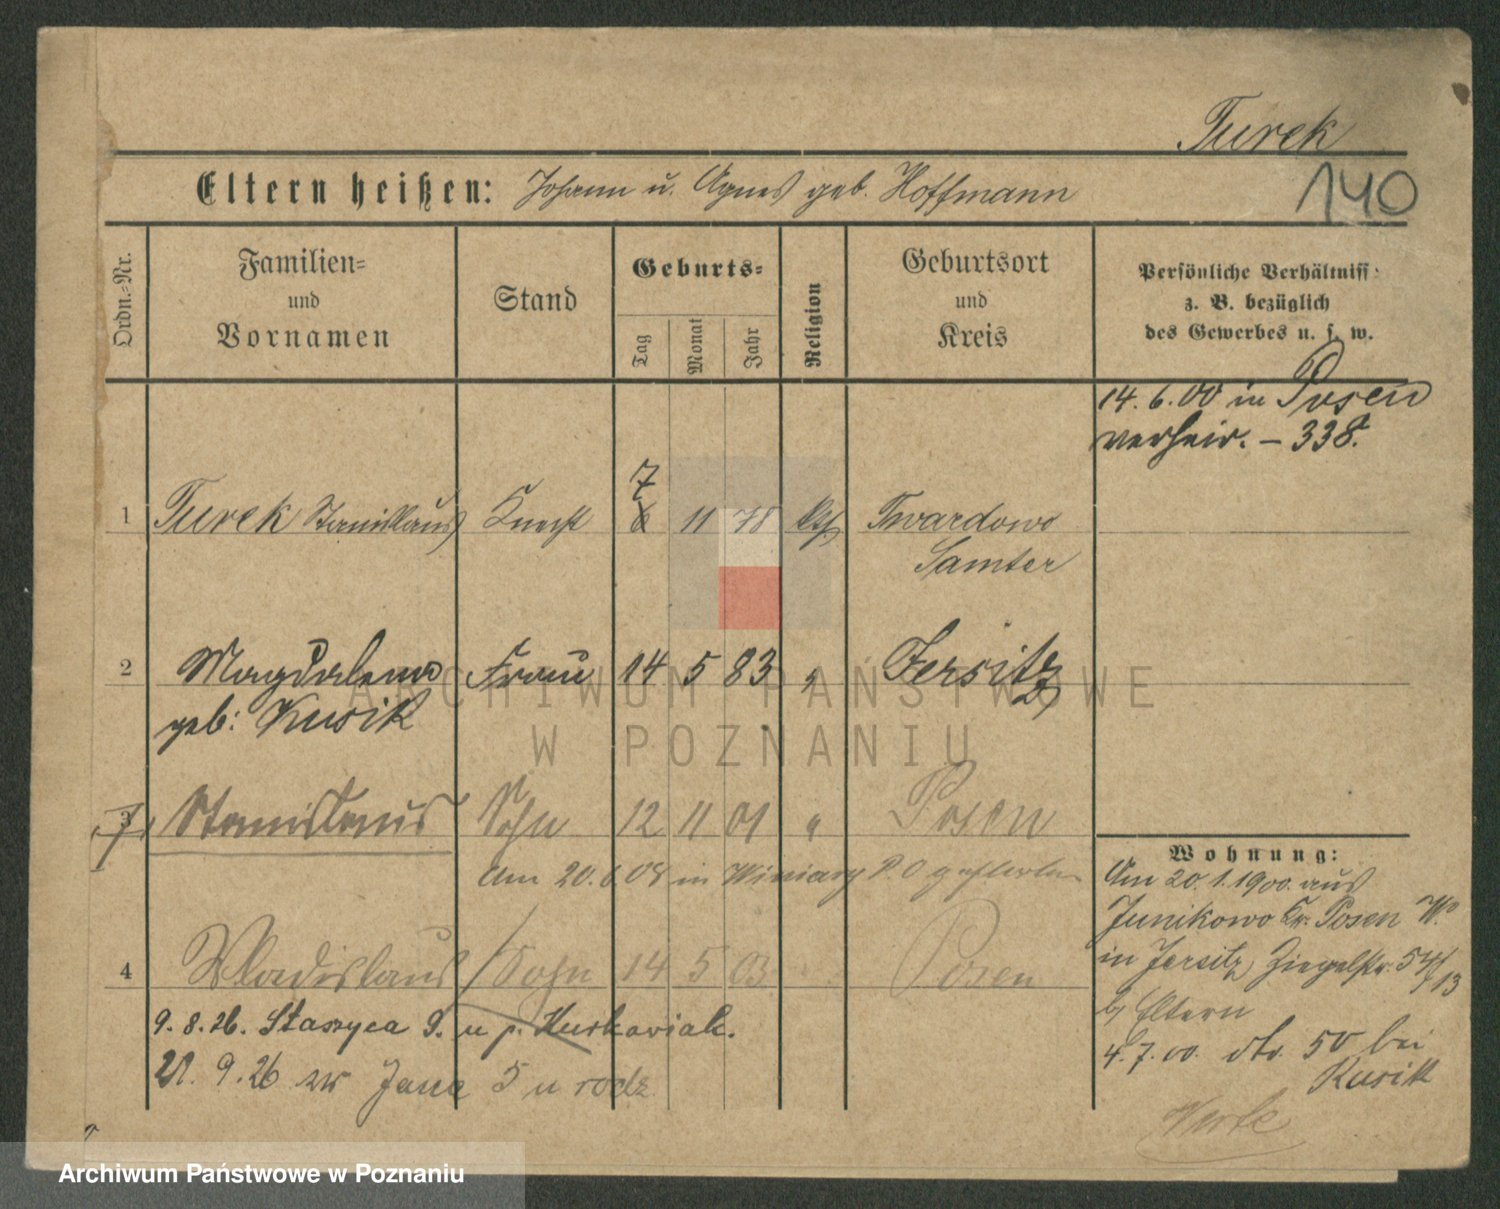 Turek
Eltern heißen: Johann u. Agnes geb. Hoffmann
140
Ordn.-Nr.
Familien-
und
Vornamen
Stand
Geburts-
Tag
Monat
Jahr
Religion
Geburtsort
und
Kreis
Persönliche Verhältniss
z. B. bezüglich
des Gewerbes u. s. w.
14. 6. 00 in Posen
verheir. – 338.
7
1 Turek Stanislaus Knecht 6 11 78 kth Twardowo
Samter
2 Magdalena Frau 14 5 83 " Jersitz
geb: Kusik
3 Stanislaus Sohn 12 11 01 " Posen
Am 20. 6. 08 in Winiary P. O gestorben
4 Wladislaus Sohn 14 5 03 Posen
9. 8. 26. Staszyca 9. u p. Kurkowiak.
21. 9. 26 Jana 5 u rodz
Wohnung:
Am 20. 1. 1900. aus
Junikowo Kr. Posen W.
in Jersitz, Ziegelstr. 54/13
b/ Eltern
4. 7. 00. dto. 50 bei
Kusik
ARCHIWUM PAŃSTWOWE
W POZNANIU
Archiwum Państwowe w Poznaniu